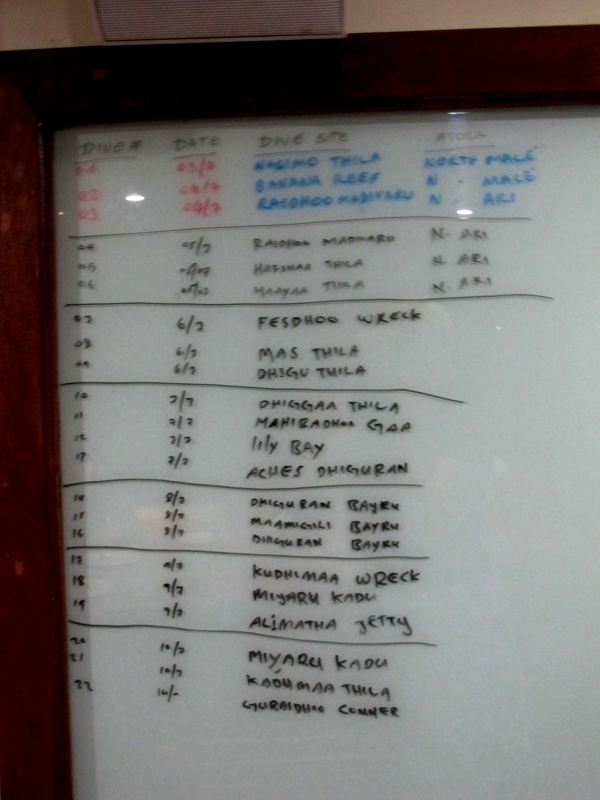 DIVE# DATE DIVE SITE ATOLL
01 03/7 NASIMO THILA NORTH MALÉ
02 04/7 BANANA REEF N - MALÉ
03 04/7 RASDHOO MADIVARU N - ARI
04 05/7 RASDHOO MADIVARU N. ARI
05 05/07 THILA N. ARI
06 05/07 MAAYAA THILA N. ARI
07 6/7 FESDHOO WRECK
08 6/7 MAS THILA
09 6/7 DHIGU THILA
10 7/7 DHIGGAA THILA
11 7/7 MAHIBADHOO GAA
12 7/7 lily BAY
13 7/7 ACHES DHIGURAN
14 8/7 DHIGURAN BAYRU
15 8/7 MAAMIGILI BAYRU
16 8/7 DHIGURAN BAYRU
17 9/7 KUDHIMAA WRECK
18 9/7 MIYARU KADU
19 9/7 ALIMATHA JETTY
20 10/7 MIYARU KADU
21 10/7 KADHMAA THILA
22 10/- GURAIDHOO CONNER